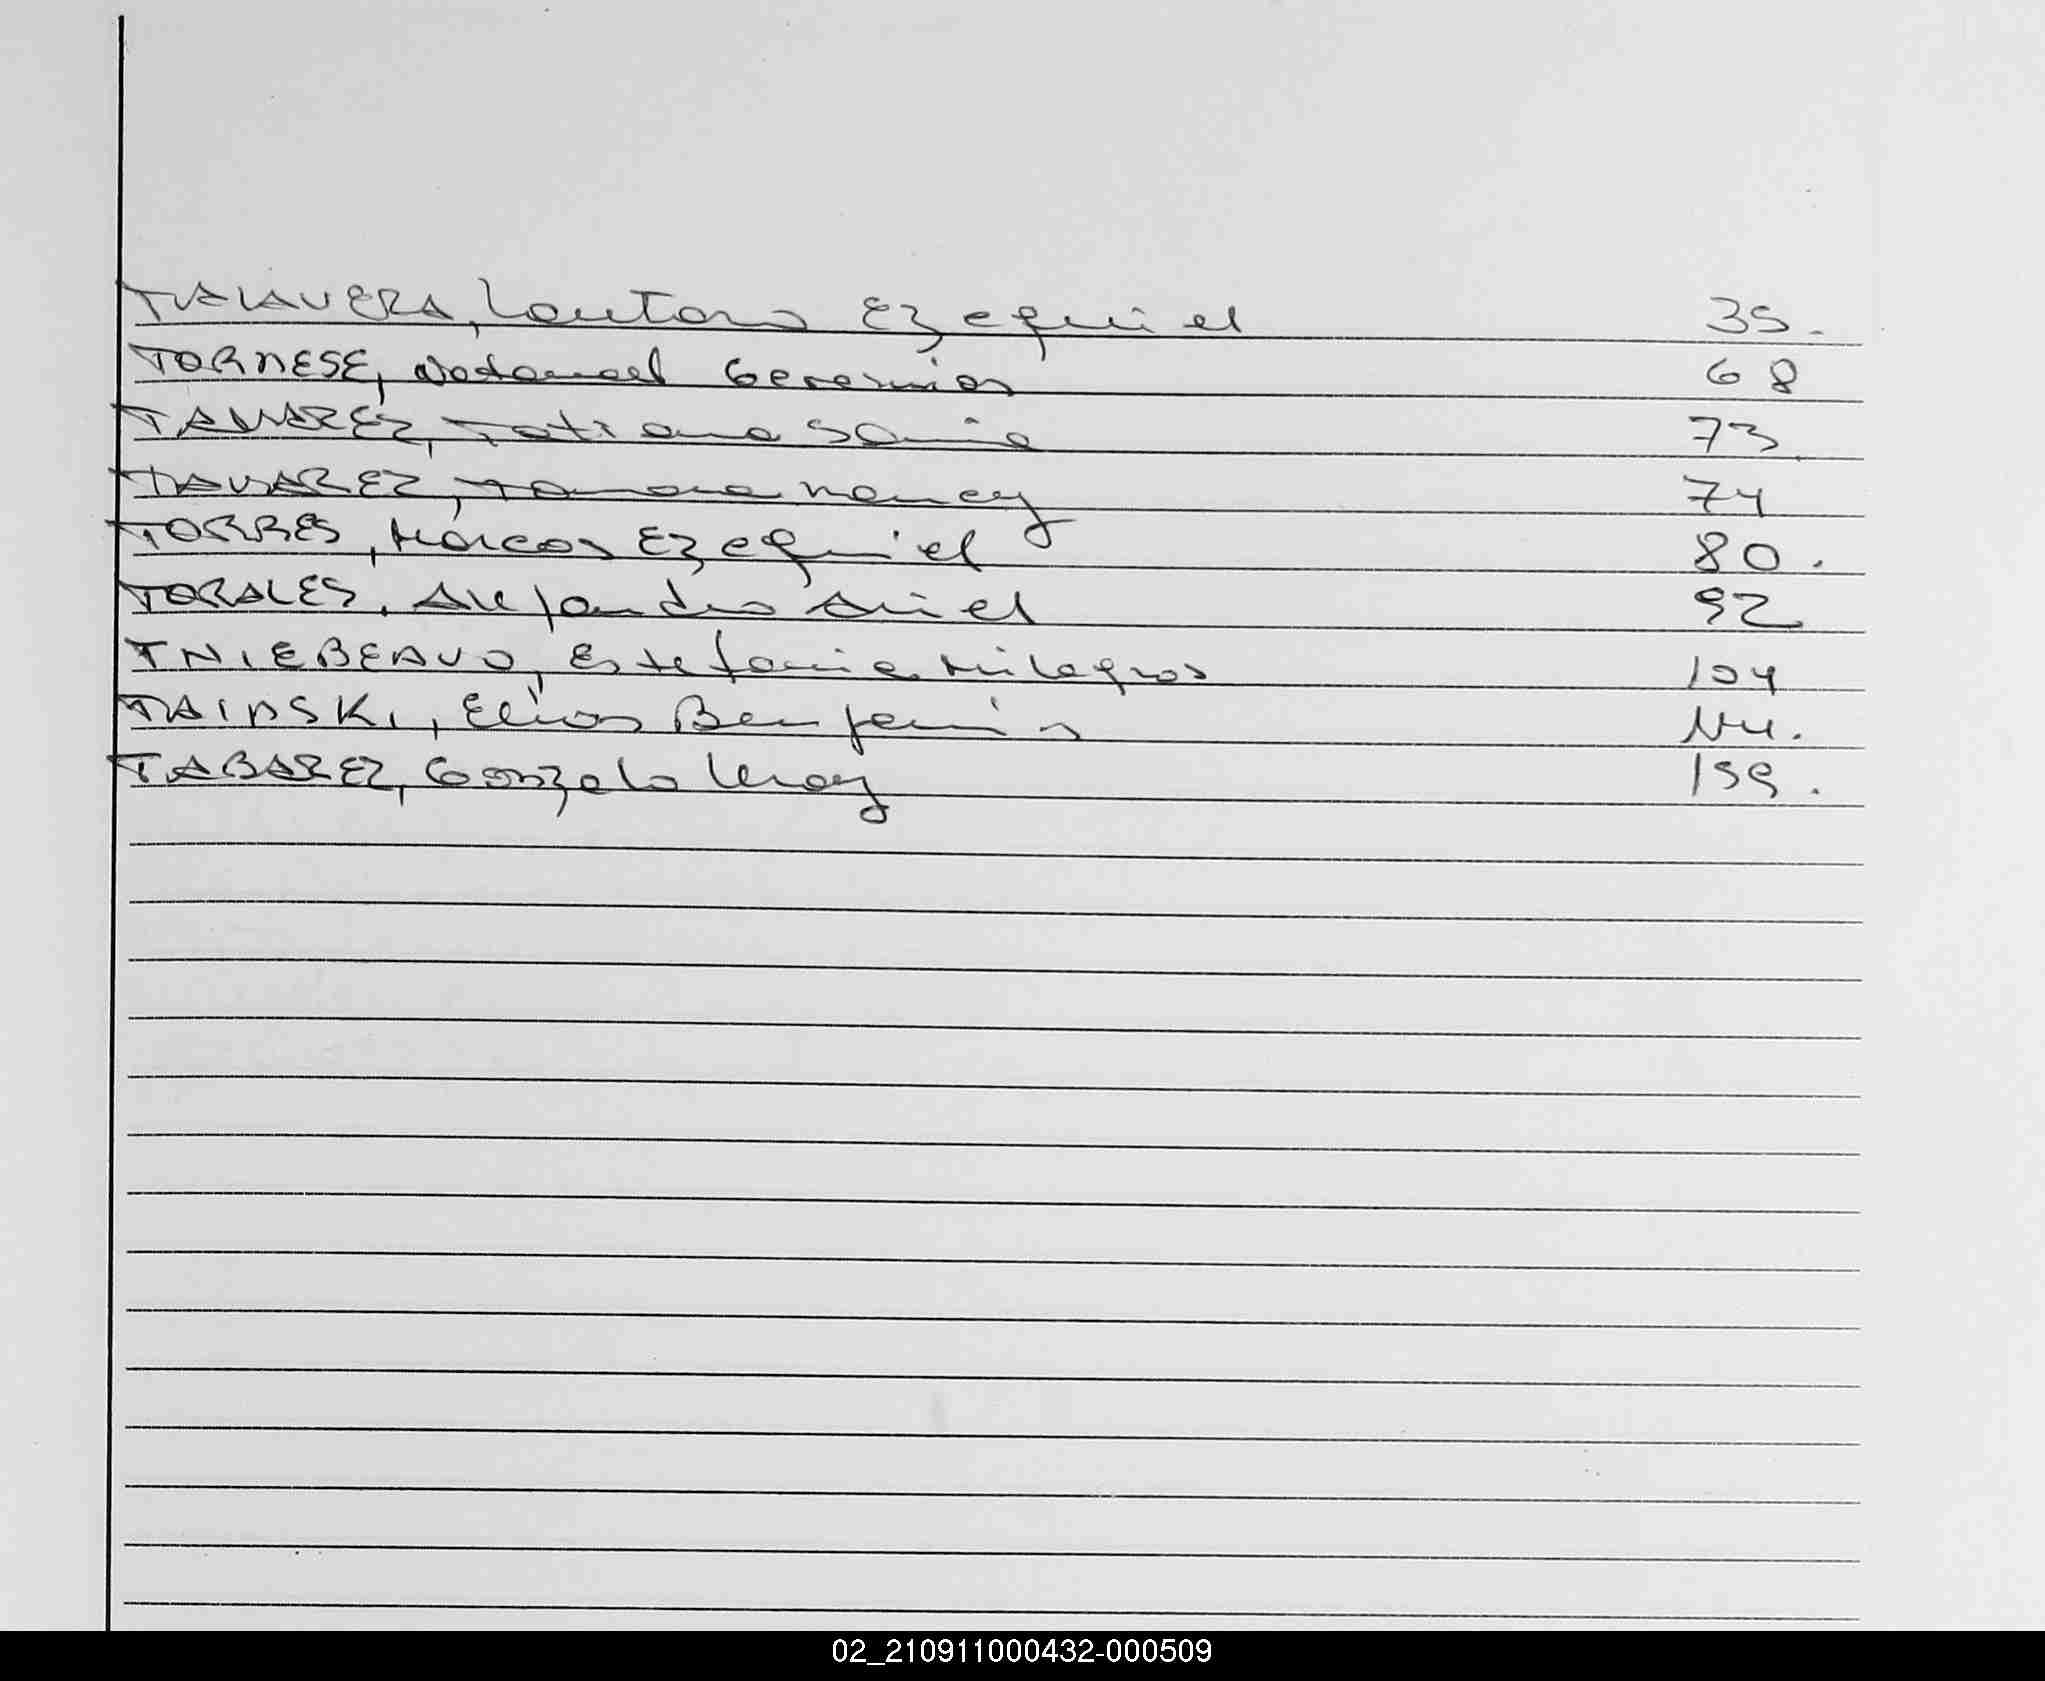 TALAVERA, Lautaro Ezequiel 35.
TORNESE, Natanael Geremias 68
TAVAREZ, Tatiana Sonia 73
TAVAREZ, Tamara Nancy 74
TORRES, Marcos Ezequiel 80.
TORALES, Alejandro Ariel 92
Estefania Milagros 104
Elias Benjamin
TABAREZ, Gonzalo 159.
02_210911000432-000509